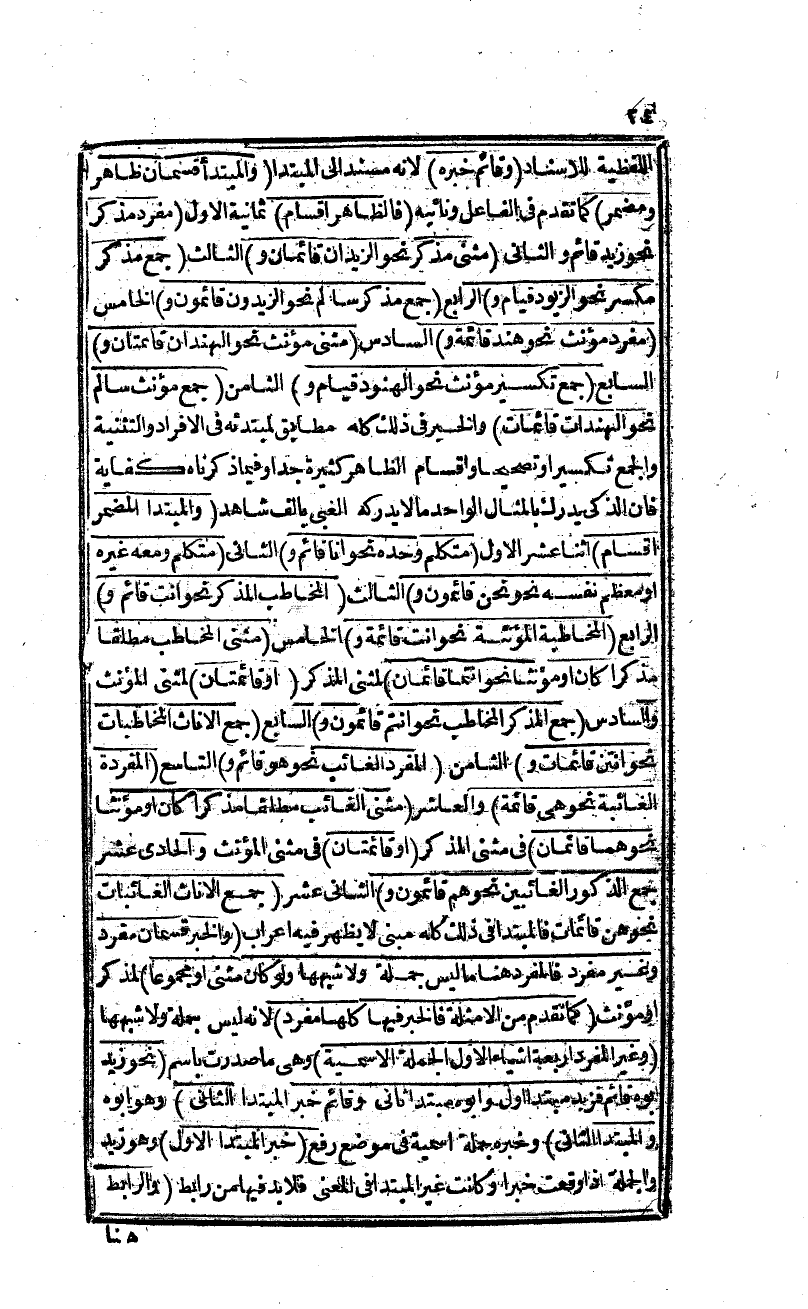 ٢٤
اللفظية للاسناد (وقائم خبره) لانه مسند الى المبتدا (والمبتدأ قسمان ظاهر
ومضمر) كما تقدم فى الفاعل ونائبه (فالظاهر اقسام) ثمانية الاول (مفرد مذكر
نحو زيد قائم و) الثانى (مثنى مذكر نحو الزيدان قائمان و) الثالث (جمع مذكر
مكسر نحو الزيود قيام و) الرابع (جمع مذكر سالم نحو الزيدون قائمون و) الخامس
(مفرد مؤنث نحو هند قائمة و) السادس (مثنى مؤنث نحو الهندان قائمتان و)
السابع (جمع تكسير مؤنث نحو الهنود قيام و) الثامن (جمع مؤنث سالم
نحو الهندات قائمات) والخبر فى ذلك كله مطابق لمبتدئه فى الافراد والتثنية
والجمع تكسيرا وتصحيحا واقسام الظاهر كثيرة جدا وفيما ذكرناه كفاية
فان الذكى يدرك بالمثال الواحد مالا يدركه الغبى بالف شاهد (والمبتدا المضمر
اقسام) اثنا عشر الاول (متكلم وحده نحو انا قائم و) الثانى (متكلم ومعه غيره
او معظم نفسه نحو نحن قائمون و) الثالث (المخاطب المذكر نحو انت قائم و)
الرابع (المخاطبة المؤنثة نحو انت قائمة و) الخامس (مثنى المخاطب مطلقا
مذكرا كان او مؤنثا نحو انتما قائمان) لمثنى المذكر (او قائمتان) لمثنى المؤنث
والسادس (جمع المذكر المخاطب نحو انتم قائمون و) السابع (جمع الاناث المخاطبات
نحو انتن قائمات و) الثامن (المفرد الغائب نحو هو قائم و) التاسع (المفردة
الغائبة نحو هى قائمة) والعاشر (مثنى الغائب مطلقا مذكرا كان او مؤنثا
نحو هما قائمان) فى مثنى المذكر (او قائمتان) فى مثنى المؤنث والحادى عشر
(جمع الذكور الغائبين نحو هم قائمون و) الثانى عشر (جمع الاناث الغائبات
نحو هن قائمات) فالمبتدا فى ذلك كله مبنى لا يظهر فيه اعراب (والخبر قسمان مفرد
وغير مفرد فالمفرد هنا ما ليس جملة ولا شبهها ولو كان مثنى او مجموعا) لمذكر
او مؤنث (كما تقدم من الامثلة فالخبر فيها كلها مفرد) لانه ليس جملة ولا شبهها
(وغير المفرد اربعة اشياء الاول الجملة الاسمية) وهى ما صدرت باسم (نحو زيد
ابوه قائم فزيد مبتدا اول وابوه مبتدا ثانى وقائم خبر المبتدا الثانى) وهو ابوه
(والمبتدا الثانى) وخبره جملة اسمية فى موضع رفع (خبر المبتدا الاول) وهو زيد
والجملة اذا وقعت خبرا وكانت غير المبتدا فى المعنى فلا بد فيها من رابط (والرابط
هنا